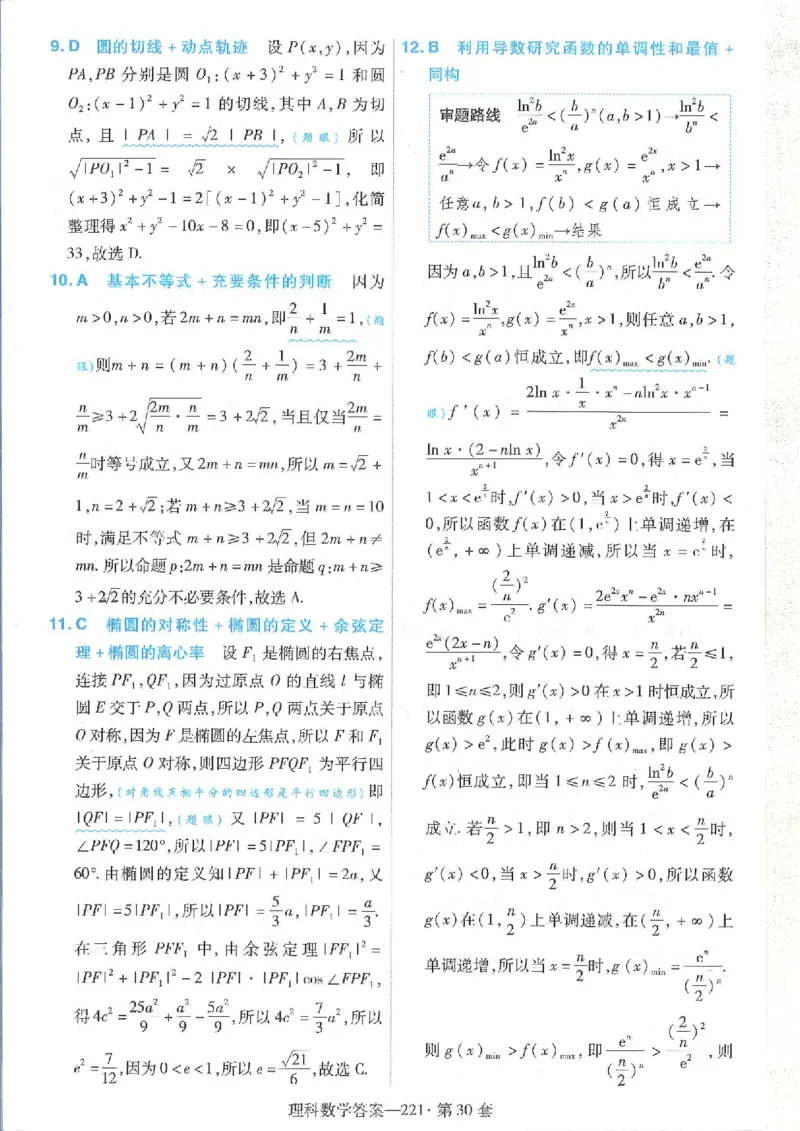 9. D 圆的切线 + 动点轨迹 设 P(x,y),因为
PA,PB 分别是圆 O₁:(x+3)² + y² = 1 和圆
O₂:(x-1)² + y² = 1 的切线,其中 A,B 为切
点, 且 |PA| = √2|PB|,(题眼)所以
√(|PO₁|²-1) = √2 × √(|PO₂|²-1), 即
(x+3)²+y²-1=2[(x-1)²+y²-1],化简
整理得 x²+y²-10x-8=0,即(x-5)²+y²=
33,故选 D.
10. A 基本不等式 + 充要条件的判断 因为
m>0,n>0,若 2m+n=mn,即 2/n + 1/m = 1,(题
眼)则 m+n=(m+n)(2/n + 1/m) = 3 + 2m/n +
n/m ≥ 3+2√(2m/n · n/m) = 3+2√2,当且仅当 2m/n =
n/m 时等号成立,又 2m+n=mn,所以 m=√2+
1,n=2+√2;若 m+n≥3+2√2,当 m=n=10
时,满足不等式 m+n≥3+2√2,但 2m+n≠
mn. 所以命题 p:2m+n=mn 是命题 q:m+n≥
3+2√2的充分不必要条件,故选 A.
11. C 椭圆的对称性 + 椭圆的定义 + 余弦定
理 + 椭圆的离心率 设 F₁ 是椭圆的右焦点,
连接 PF₁,QF₁,因为过原点 O 的直线 l 与椭
圆 E 交于 P,Q 两点,所以 P,Q 两点关于原点
O 对称,因为 F 是椭圆的左焦点,所以 F 和 F₁
关于原点 O 对称,则四边形 PFQF₁ 为平行四
边形,(对角线互相平分的四边形是平行四边形)即
|QF|=|PF₁|,(题眼)又 |PF| = 5|QF|,
∠PFQ=120°,所以|PF|=5|PF₁|,∠FPF₁=
60°. 由椭圆的定义知|PF|+|PF₁|=2a,又
|PF|=5|PF₁|,所以|PF|=5/3 a,|PF₁|=a/3.
在三角形 PFF₁ 中,由余弦定理|FF₁|²=
|PF|²+|PF₁|²-2|PF|·|PF₁|cos∠FPF₁,
得 4c²=25a²/9 + a²/9 - 5a²/9,所以 4c²=7/3 a²,所以
e²=7/12,因为 0<e<1,所以 e=√21/6,故选 C.
12. B 利用导数研究函数的单调性和最值 +
同构
审题路线 ln²b/e²ᵃ <(b/a)ⁿ(a,b>1)→ln²b/bⁿ <
e²ᵃ/aⁿ→令 f(x)=ln²x/xⁿ,g(x)=e²ˣ/xⁿ,x>1→
任意 a,b>1,f(b)<g(a)恒成立→
f(x)max<g(x)min→结果
因为 a,b>1,且 ln²b/e²ᵃ <(b/a)ⁿ,所以 ln²b/bⁿ < e²ᵃ/aⁿ. 令
f(x)=ln²x/xⁿ,g(x)=e²ˣ/xⁿ,x>1,则任意 a,b>1,
f(b)<g(a)恒成立,即 f(x)max<g(x)min. (题
眼)f′(x) = (2ln x·1/x·xⁿ-nln²x·xⁿ⁻¹)/x²ⁿ =
ln x·(2-nln x)/xⁿ⁺¹,令 f′(x)=0,得 x=e^(2/n),当
1<x<e^(2/n)时,f′(x)>0,当 x>e^(2/n)时,f′(x)<
0,所以函数 f(x)在(1,e^(2/n))上单调递增,在
(e^(2/n),+∞)上单调递减,所以当 x=e^(2/n)时,
f(x)max=(2/n)²/e². g′(x)=(2e²ˣxⁿ-e²ˣ·nxⁿ⁻¹)/x²ⁿ =
e²ˣ(2x-n)/xⁿ⁺¹,令 g′(x)=0,得 x=n/2,若 n/2≤1,
即 1≤n≤2,则 g′(x)>0 在 x>1 时恒成立,所
以函数 g(x)在(1,+∞)上单调递增,所以
g(x)>e²,此时 g(x)>f(x)max,即 g(x)>
f(x)恒成立,即当 1≤n≤2 时,ln²b/e²ᵃ <(b/a)ⁿ
成立. 若 n/2>1,即 n>2,则当 1<x<n/2时,
g′(x)<0,当 x>n/2时,g′(x)>0,所以函数
g(x)在(1,n/2)上单调递减,在(n/2,+∞)上
单调递增,所以当 x=n/2时,g(x)min=eⁿ/(n/2)ⁿ.
则 g(x)min>f(x)max,即 eⁿ/(n/2)ⁿ > (2/n)²/e²,则
理科数学答案—221·第 30 套